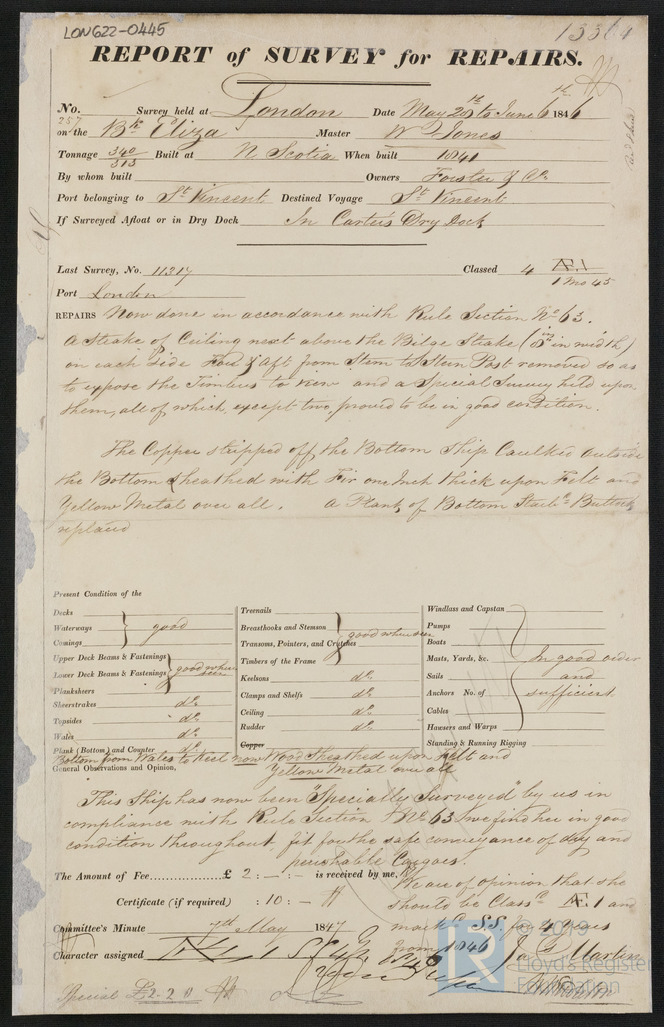 LON622-0445
13364
REPORT of SURVEY for REPAIRS.
No. 257 Survey held at London Date May 28th to June 6th 1846
on the Bk Eliza Master W Jones
Tonnage 340/315 Built at N Scotia When built 1841
By whom built Owners Forster & Co.
Port belonging to St Vincent Destined Voyage St Vincent
If Surveyed Afloat or in Dry Dock In Carters Dry Dock
Last Survey, No. 11217 Classed 4 Æ.1
1 Mo 45
Port London
REPAIRS Now done in accordance with Rule Section No. 63.
A Strake of Ceiling next above the Bilge Strake (8 in in width)
on each side Fore & aft from Stem to Stern Post removed so as
to expose the Timbers to view and a Special Survey held upon
them, all of which, except two, proved to be in good condition.
The Copper stripped off the Bottom Ship Caulked outside
the Bottom sheathed with Fir one Inch thick upon Felt and
Yellow Metal over all. a Plank of Bottom Starbd Buttock
replaced
Present Condition of the
Decks
Waterways good
Comings
Upper Deck Beams & Fastenings
Lower Deck Beams & Fastenings good where seen
Planksheers
Sheerstrakes do.
Topsides do.
Wales do.
Plank (Bottom) and Counter do.
Treenails
Breasthooks and Stemson
Transoms, Pointers, and Crutches good where seen
Timbers of the Frame
Keelsons do.
Clamps and Shelfs do.
Ceiling do.
Rudder do.
Copper
Windlass and Capstan
Pumps
Boats
Masts, Yards, &c. In good order
Sails and
Anchors No. of sufficient
Cables
Hawsers and Warps
Standing & Running Rigging
Bottom from Wales to Keel now Wood Sheathed upon Felt and
Yellow Metal over all
General Observations and Opinion,
This Ship has now been "Specially Surveyed" by us in
compliance with Rule Section No 63, we find her in good
condition throughout, fit for the safe conveyance of dry and
perishable Cargoes.
The Amount of Fee £ 2 : - : - is received by me,
We are of opinion that she
Certificate (if required) : 10 : -
should be Classd Æ.1 and
Committee's Minute 7th May 1847
markd S.S. for 4 years
from 1846
Character assigned
Jas G Martin
Special £2-2 0
© 2019
Lloyd's Register
Foundation